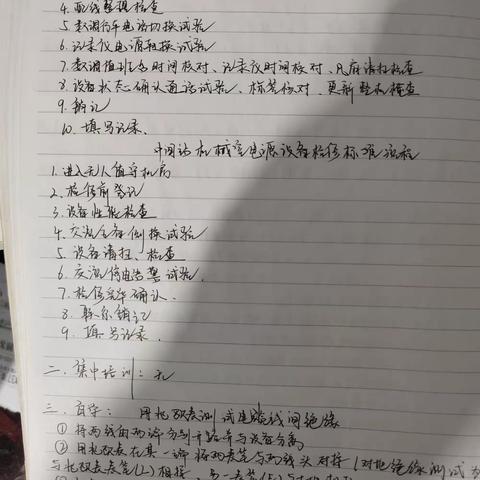 4. 配线整理检查
5. 数调行车电话切换试验
6. 记录仪电源转换试验
7. 数调值班台时间核对、记录仪时间核对、风扇清扫检查
8. 设备状态确认通话试验、标签核对、更新整机检查
9. 销记
10. 填写记录.
中间站机械室电源设备检修标准流程
1. 进入无人值守机房
2. 检修前登记
3. 设备性能检查
4. 交流主备倒换试验
5. 设备清扫、检查
6. 交流停电告警试验.
7. 检修结果确认.
8. 联系销记
9. 填写记录.
二. 集中培训: 无
三. 自学: 用兆欧表测试电缆线间绝缘
① 将两线的两端分别开路并与设备分离
② 用兆欧表在其一端将两表笔与两线头对接(对地绝缘测试为
与兆欧表表笔(L)相接,另一表笔(E)